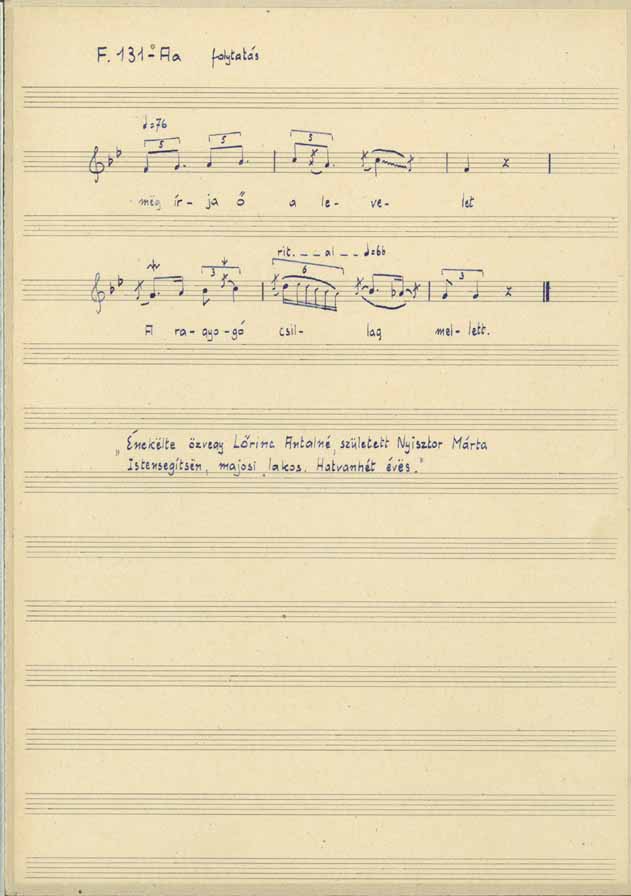 F. 131-Aa folytatás
♩=76
5 5 5
még ír- ja ő a le- ve- let
rit. _ _ al _ _ ♩=66
3 6 3
A ra-gyo-gó csil- lag mel- lett.
„Énekëlte özvegy Lőrinc Antalné, született Nyisztor Márta
Istensegítsën, majosi lakos. Hatvanhét évës."